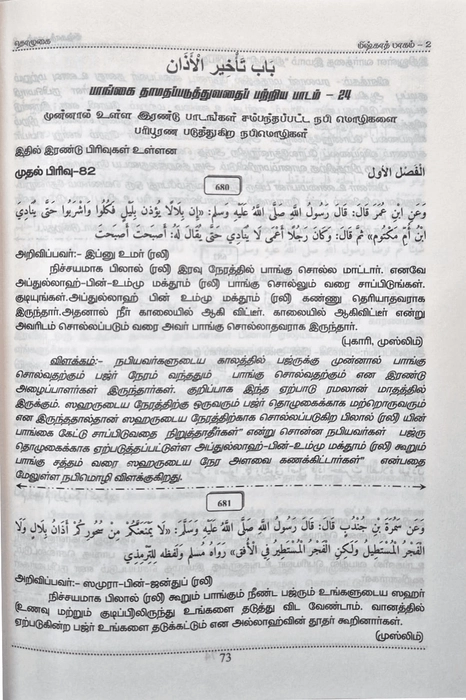 தொழுகை
மிஷ்காத் பாகம் - 2
بَاب تَأْخِير الْأَذَان
பாங்கை தாமதப்படுத்துவதைப் பற்றிய பாடம் - 24
முன்னால் உள்ள இரண்டு பாடங்கள் சம்பந்தப்பட்ட நபி மொழிகளை
பரிபூரண படுத்துகிற நபிமொழிகள்
இதில் இரண்டு பிரிவுகள் உள்ளன
முதல் பிரிவு-82
الْفَصْل الأول
680
وَعَنِ ابْنِ عُمَرَ قَالَ: قَالَ رَسُولُ اللَّهِ صَلَّى اللَّهُ عَلَيْهِ وسلم: «إِن بِلَالًا يُؤذن بِلَيْلٍ فَكُلُوا وَاشْرَبُوا حَتَّى يُنَادِيَ
ابْنُ أُمِّ مَكْتُومٍ» ثمَّ قَالَ: وَكَانَ رَجُلًا أَعْمَى لَا يُنَادِي حَتَّى يُقَالَ لَهُ: أَصبَحت أَصبَحت
அறிவிப்பவர்:- இப்னு உமர் (ரலி)
நிச்சயமாக பிலால் (ரலி) இரவு நேரத்தில் பாங்கு சொல்ல மாட்டார். எனவே
அப்துல்லாஹ்-பின்-உம்மு மக்தூம் (ரலி) பாங்கு சொல்லும் வரை சாப்பிடுங்கள்.
குடியுங்கள்.அப்துல்லாஹ் பின் உம்மு மக்தூம் (ரலி) கண்ணு தெரியாதவராக
இருந்தார்.அதனால் நீர் காலையில் ஆகி விட்டீர். காலையில் ஆகிவிட்டீர் என்று
அவரிடம் சொல்லப்படும் வரை அவர் பாங்கு சொல்லாதவராக இருந்தார்.
(புகாரி, முஸ்லிம்)
விளக்கம்:- நபியவர்களுடைய காலத்தில் பஜ்ருக்கு முன்னால் பாங்கு
சொல்வதற்கும் பஜ்ர் நேரம் வந்ததும் பாங்கு சொல்வதற்கும் என இரண்டு
அழைப்பாளர்கள் இருந்தார்கள். குறிப்பாக இந்த ஏற்பாடு ரமலான் மாதத்தில்
இருக்கும். ஸஹருடைய நேரத்திற்கு ஒருவரும் பஜ்ர் தொழுகைக்காக மற்றொருவரும்
என இருந்ததால்தான் ஸஹருடைய நேரத்திற்காக சொல்லப்படுகிற பிலால் (ரலி) யின்
பாங்கை கேட்டு சாப்பிடுவதை நிறுத்தாதீர்கள்" என்று சொன்ன நபியவர்கள் பஜ்ரு
தொழுகைக்காக ஏற்படுத்தப்பட்டுள்ள அப்துல்லாஹ்-பின்-உம்மு மக்தூம் (ரலி) கூறும்
பாங்கு சத்தம் வரை ஸஹருடைய நேர அளவை கணக்கிட்டார்கள்" என்பதை
மேலுள்ள நபிமொழி விளக்குகிறது.
681
وَعَن سَمُرَة بن جُنْدُب قَالَ: قَالَ رَسُولُ اللَّهِ صَلَّى اللَّهُ عَلَيْهِ وَسَلَّمَ: «لَا يَمْنَعَنَّكُمْ مِنْ سُحُورِكُمْ أَذَانُ بِلَالٍ وَلَا
الْفَجْرُ الْمُسْتَطِيلُ وَلَكِنِ الْفَجْرُ الْمُسْتَطِيرُ فِي الْأُفق» رَوَاهُ مُسلم وَلَفظه لِلتِّرْمِذِي
அறிவிப்பவர்:- ஸமுரா-பின்-ஜன்துப் (ரலி)
நிச்சயமாக பிலால் (ரலி) கூறும் பாங்கும் நீண்ட பஜ்ரும் உங்களுடைய ஸஹர்
(உணவு மற்றும் குடிப்பு)லிருந்து உங்களை தடுத்து விட வேண்டாம். வானத்தில்
ஏற்படுகின்ற பஜ்ர் உங்களை தடுக்கட்டும் என அல்லாஹ்வின் தூதர் கூறினார்கள்.
(முஸ்லிம்)
73